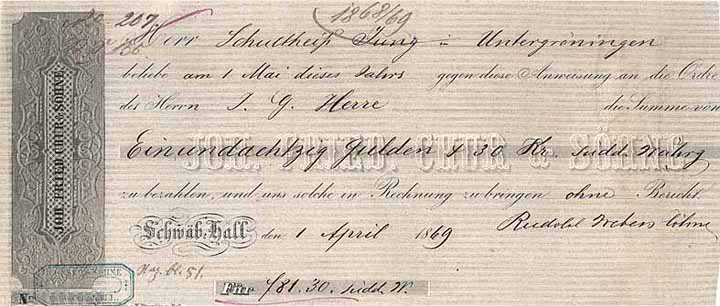 No 207.
1868/69
Herr Schultheiß Jung in Untergröningen
beliebe am 1 Mai dieses Jahrs gegen diese Anweisung an die Ordre
des Herrn J. G. Herre die Summe von
JOH. FRIED. CHUR & SÖHNE
Einundachtzig Gulden & 30 Kr. südd. Währg
zu bezahlen, und uns solche in Rechnung zu bringen ohne Bericht.
Schwäb. Hall den 1 April 1869
Rudolf Webers Söhne
Haz. bl. 51.
f 81.30. südd. W.
JOH. FRIED. CHUR & SÖHNE
No